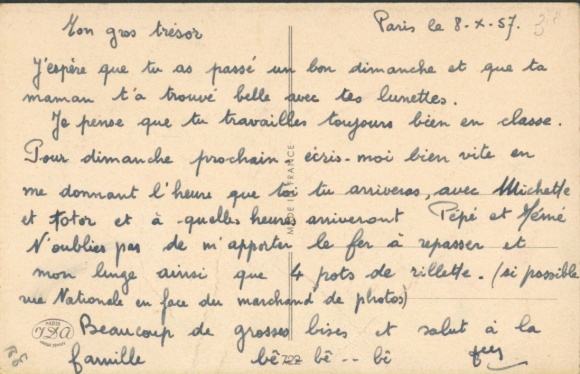 Mon gros trésor
Paris le 8-X-57.
J'espère que tu as passé un bon dimanche et que ta
maman t'a trouvé belle avec tes lunettes.
Je pense que tu travailles toujours bien en classe.
Pour dimanche prochain écris-moi bien vite en
me donnant l'heure que toi tu arriveras, avec Michette
et Totor et à quelles heures arriveront Pépé et Mémé
N'oublies pas de m'apporter le fer à repasser et
mon linge ainsi que 4 pots de rillette. (si possible
rue Nationale en face du marchand de photos)
Beaucoup de grosses bises et salut à la
famille bê bê -- bê
MADE IN FRANCE
PARIS
722